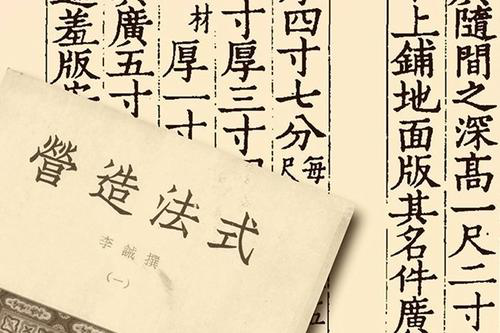 廣隨間之深高一尺二寸
上鋪地面版其名件廣
厚四寸七分每尺
寸厚三寸
材厚一寸
廣五寸
羞版
營造法式
李誡撰
(一)